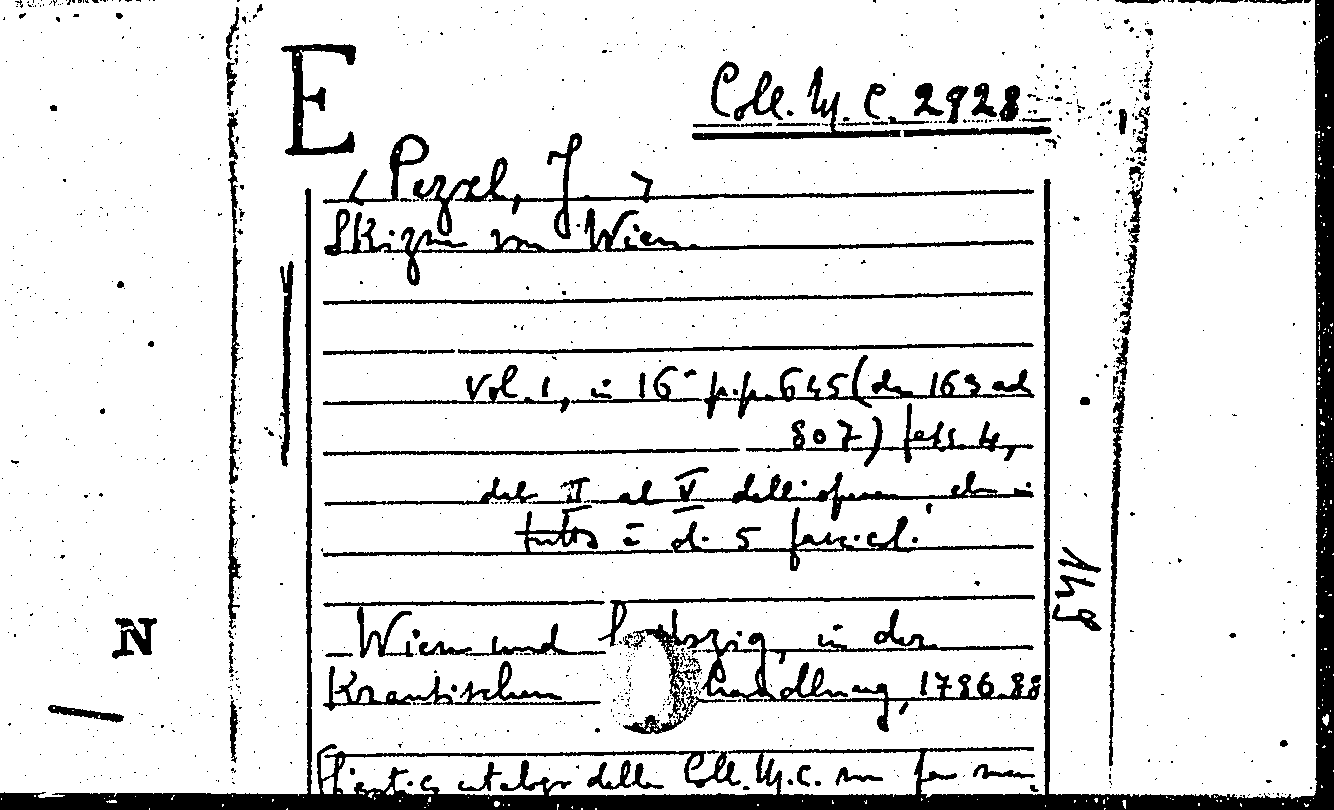 E
Coll. M. C. 2928
< Pezzl, J. >
Skizze von Wien.
Vol. 1, in 16° p.p. 645 (da 163 ad
807) fasc. 4,
dal II al V dell'opera, che in
tutto è di 5 fascicoli
149
N
Wien und Leipzig, in der
Krausischen handlung, 1786.88
catalogo della Coll. M. C. non